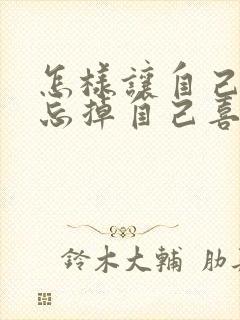 怎樣讓自己
忘掉自己喜
鈴木大輔 肋